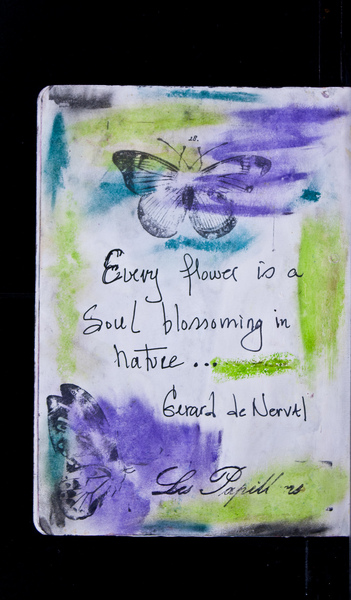 28.
Every flower is a
Soul blossoming in
nature...
Gerard de Nerval
Les Papillons